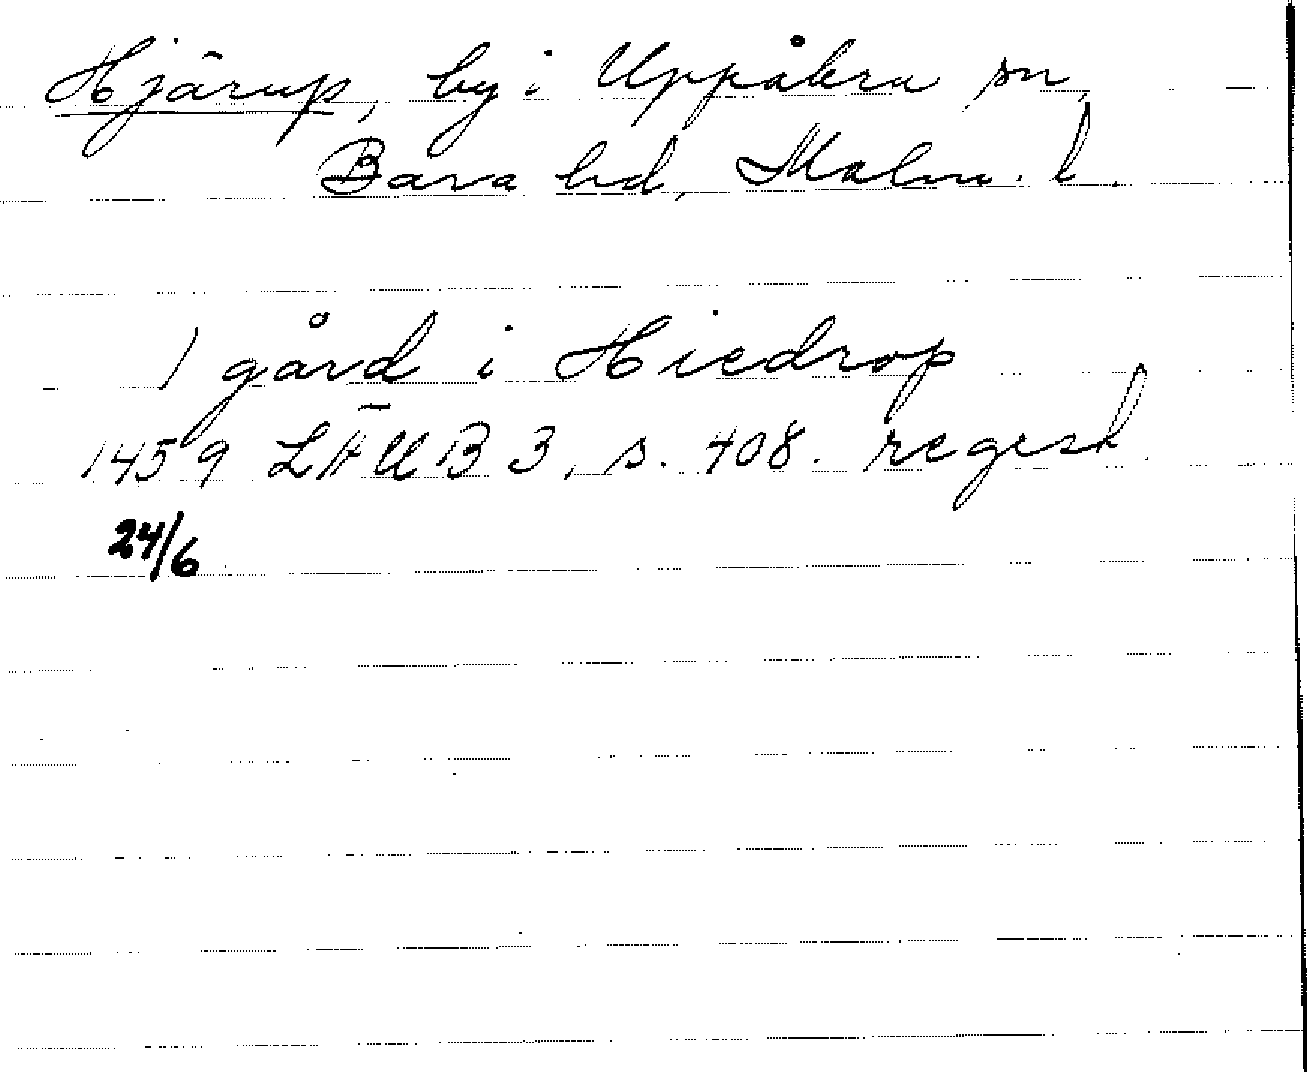 Hjärup, by i Uppåkra sn,
Bara hd, Malm. l.
1 gård i Hiedrop
1459 LÄUB 3, s. 408. regest
24/6